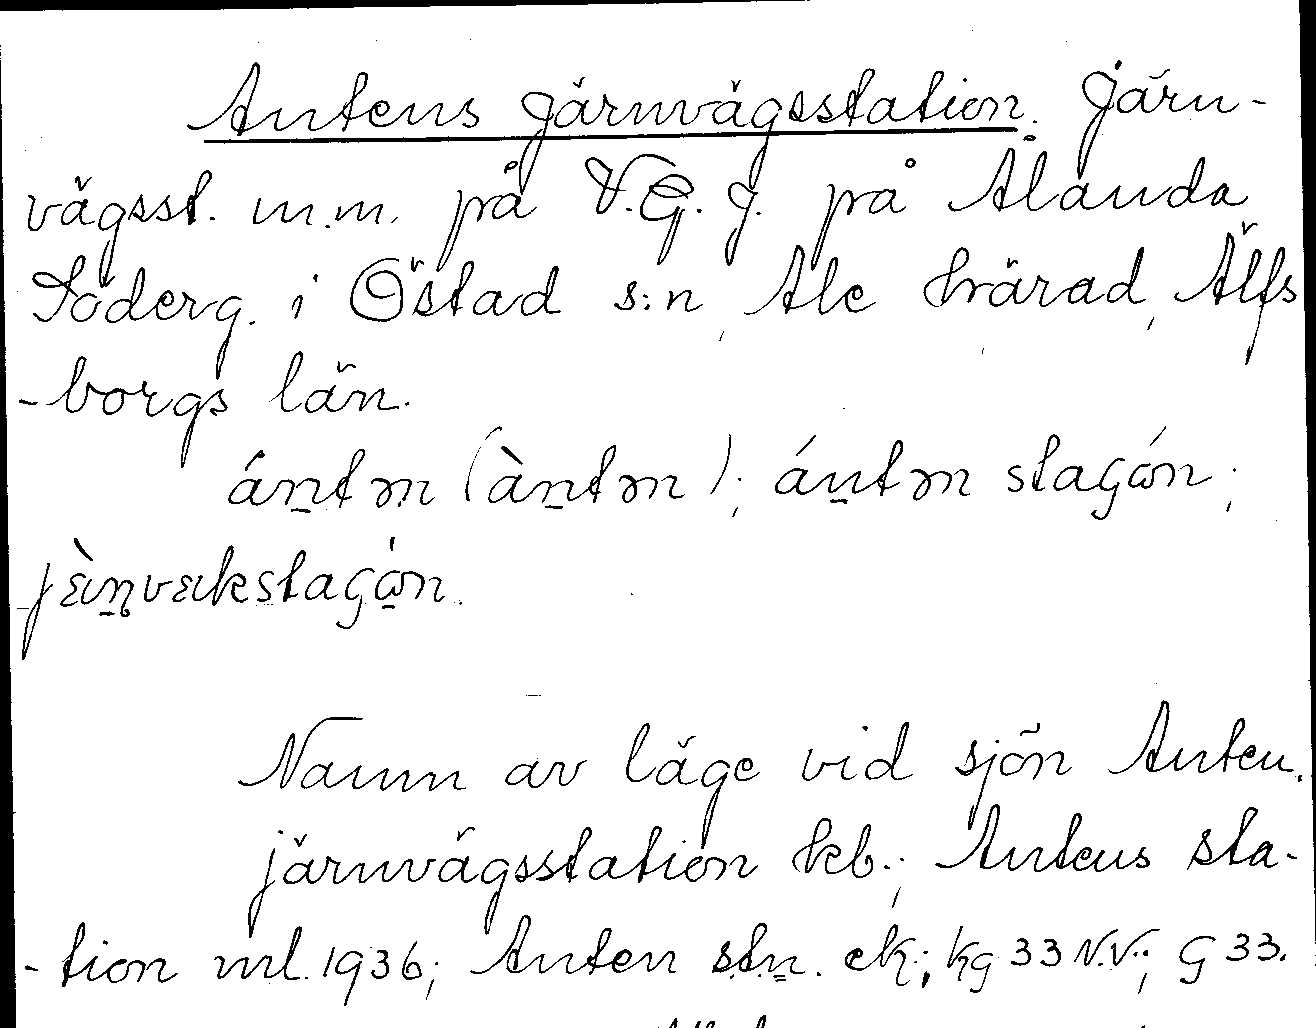 Antens järnvägsstation. Järn-
vägsst. m.m. på V.G.J. på Ålanda
Söderg. i Östad s:n, Ale härad, Älfs
-borgs län.
ántm (àntm); ántm staʃón;
jæ̀ɳvækstaʃón.
Namn av läge vid sjön Anten.
järnvägsstation hkb.; Antens sta-
-tion ml. 1936; Anten stn. ek; kg 33 N.V.; G 33.